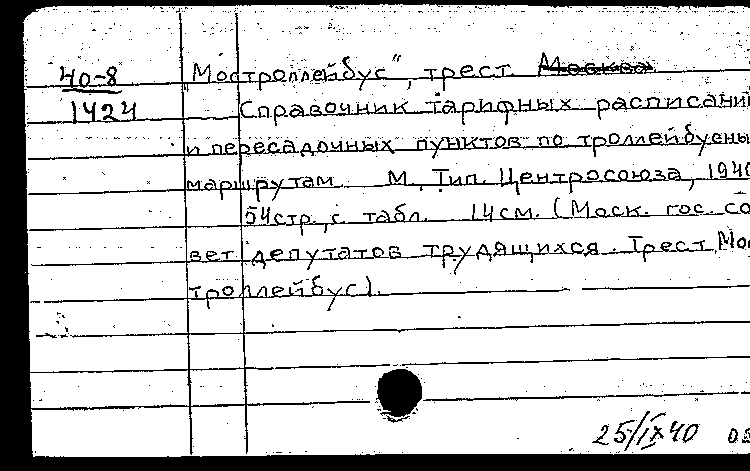 40-8 „Мостроллейбус", трест.
1424 Справочник тарифных расписаний
и пересадочных пунктов по троллейбусны
маршрутам. М, Тип. Центросоюза, 1940
54стр., с. табл. 14см. (Моск. гос. со
вет депутатов трудящихся. Трест „Мос
троллейбус).
25/IX 40